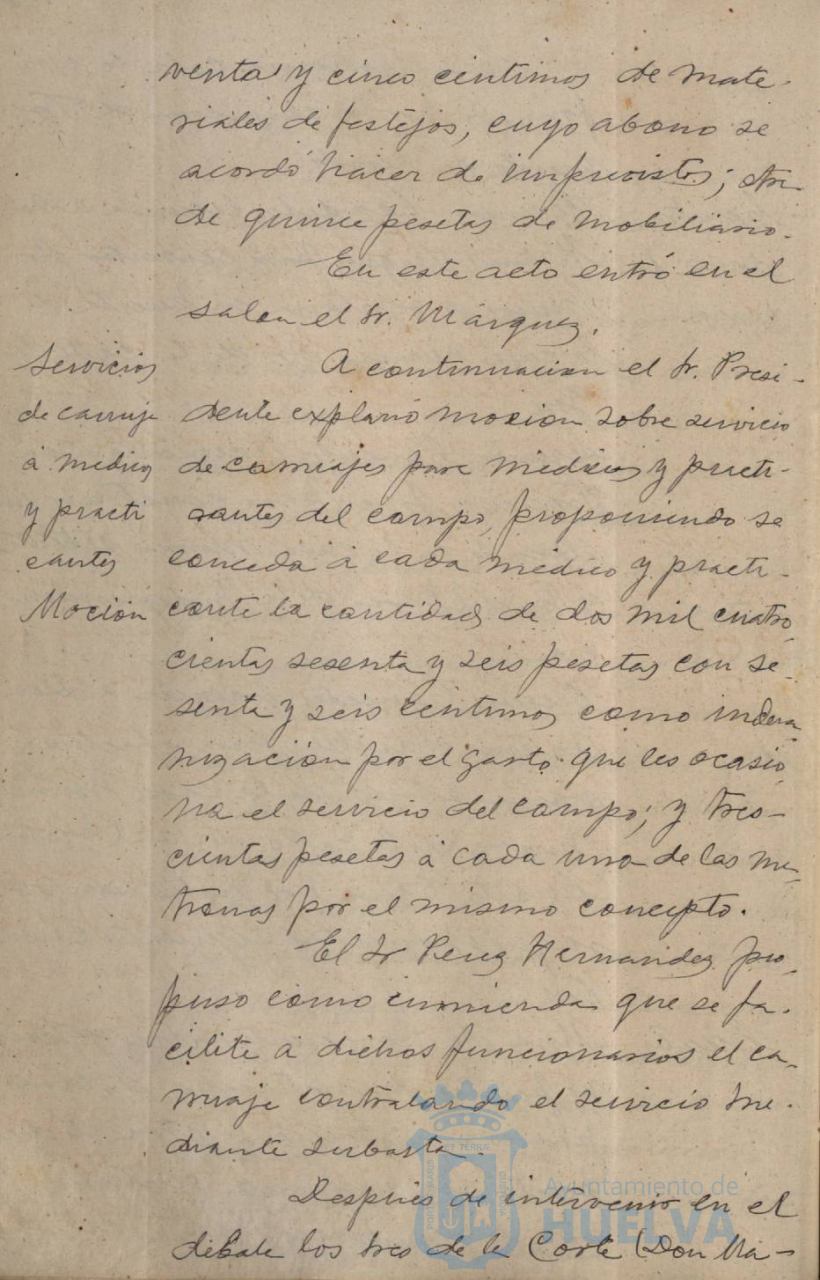 venta y cinco centimos de mate-
riales de festejos, cuyo abono se
acordó hacer de imprevistos; otra
de quince pesetas de mobiliario.
En este acto entró en el
salon el Sr. Márquez.
Servicios
de carruaje
á medicos
y practi
cantes
Moción
A continuacion el Sr. Presi-
dente explanó mocion sobre servicio
de carruajes para medicos y practi-
cantes del campo, proponiendo se
conceda á cada medico y practi-
cante la cantidad de dos mil cuatro
cientas sesenta y seis pesetas con se-
senta y seis centimos como indem
nizacion por el gasto que les ocasio
na el servicio del campo; y tres-
cientas pesetas á cada una de las ma-
tronas por el mismo concepto.
El Sr Perez Hernandez pro-
puso como enmienda que se fa-
cilite á dichos funcionarios el ca-
rruaje contratando el servicio me-
diante subasta.
Despues de intervenir en el
debate los Sres de la Corte (Don Ma-
Ayuntamiento de
HUELVA